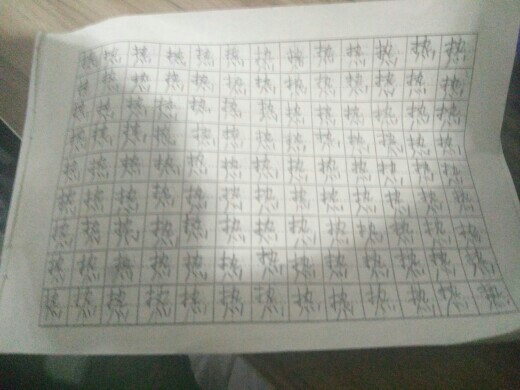 热热热热热热热热热热热热热
热热热热热热热热热热热热热
热热热热热热热热热热热热热
热热热热热热热热热热热热热
热热热热热热热热热热热热热
热热热热热热热热热热热热热
热热热热热热热热热热热热热
热热热热热热热热热热热热热
热热热热热热热热热热热热热